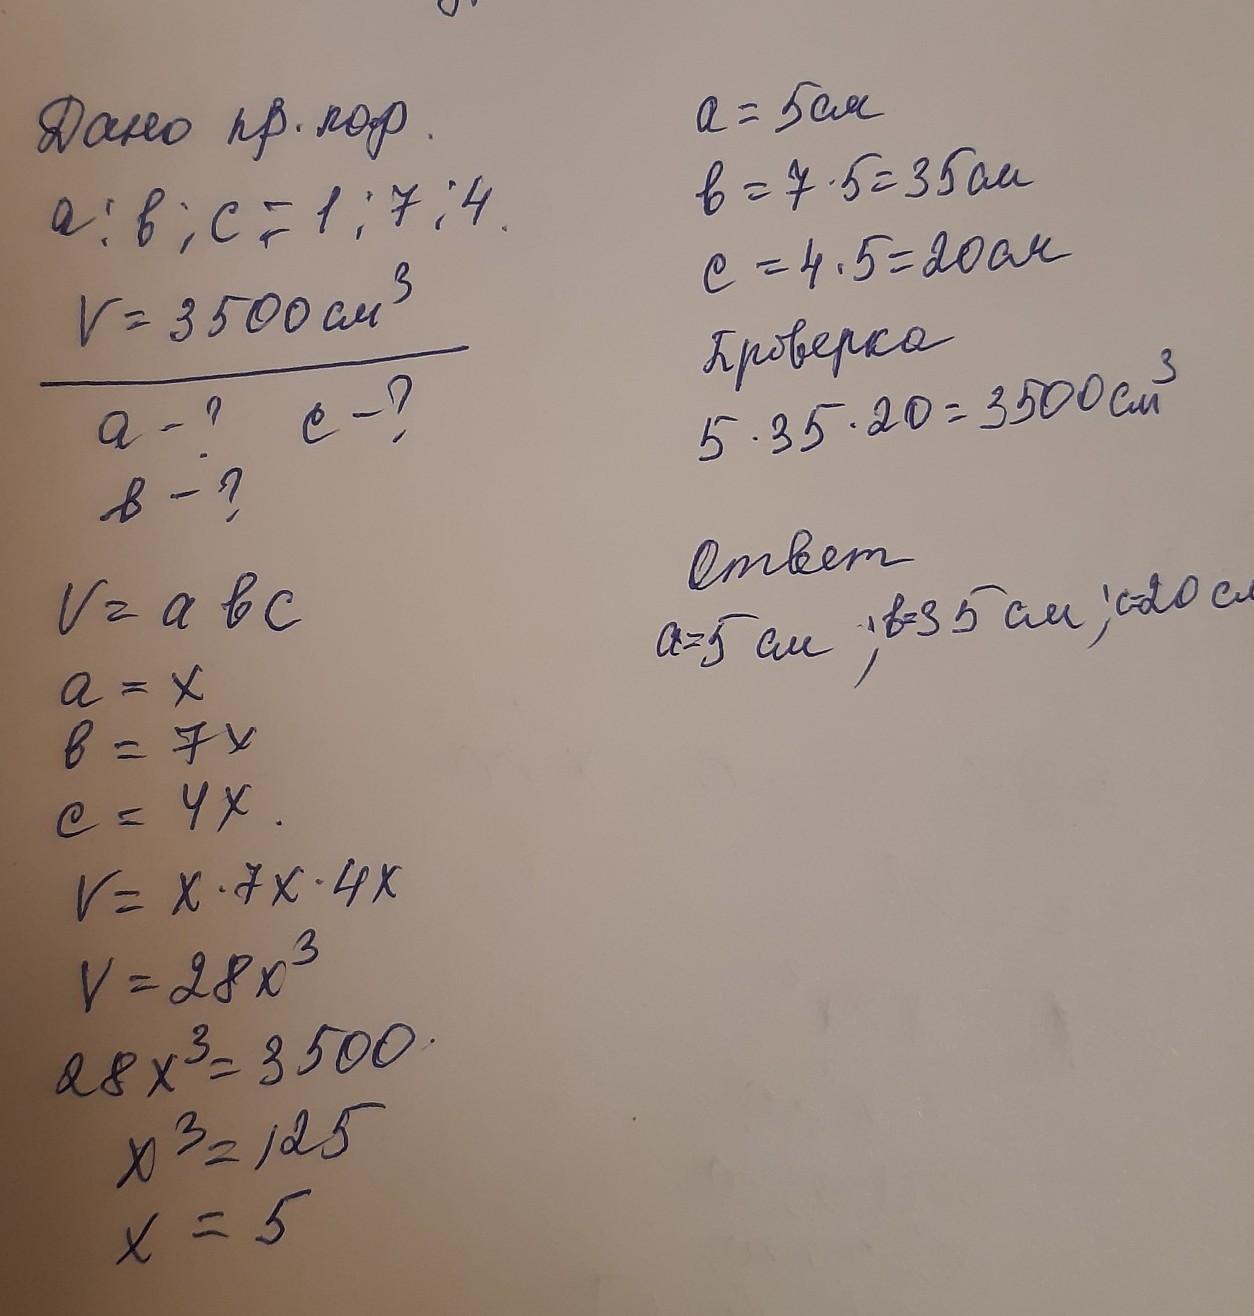 Дано пр. пар.
a : в : c = 1 : 7 : 4.
V = 3500 см³
a - ? c - ?
в - ?
V = a в c
a = x
в = 7x
c = 4x.
V = x · 7x · 4x
V = 28x³
28x³ = 3500.
x³ = 125
x = 5
a = 5 см
в = 7 · 5 = 35 см
c = 4 · 5 = 20 см
Проверка
5 · 35 · 20 = 3500 см³
Ответ
a = 5 см ; в = 35 см ; c = 20 см